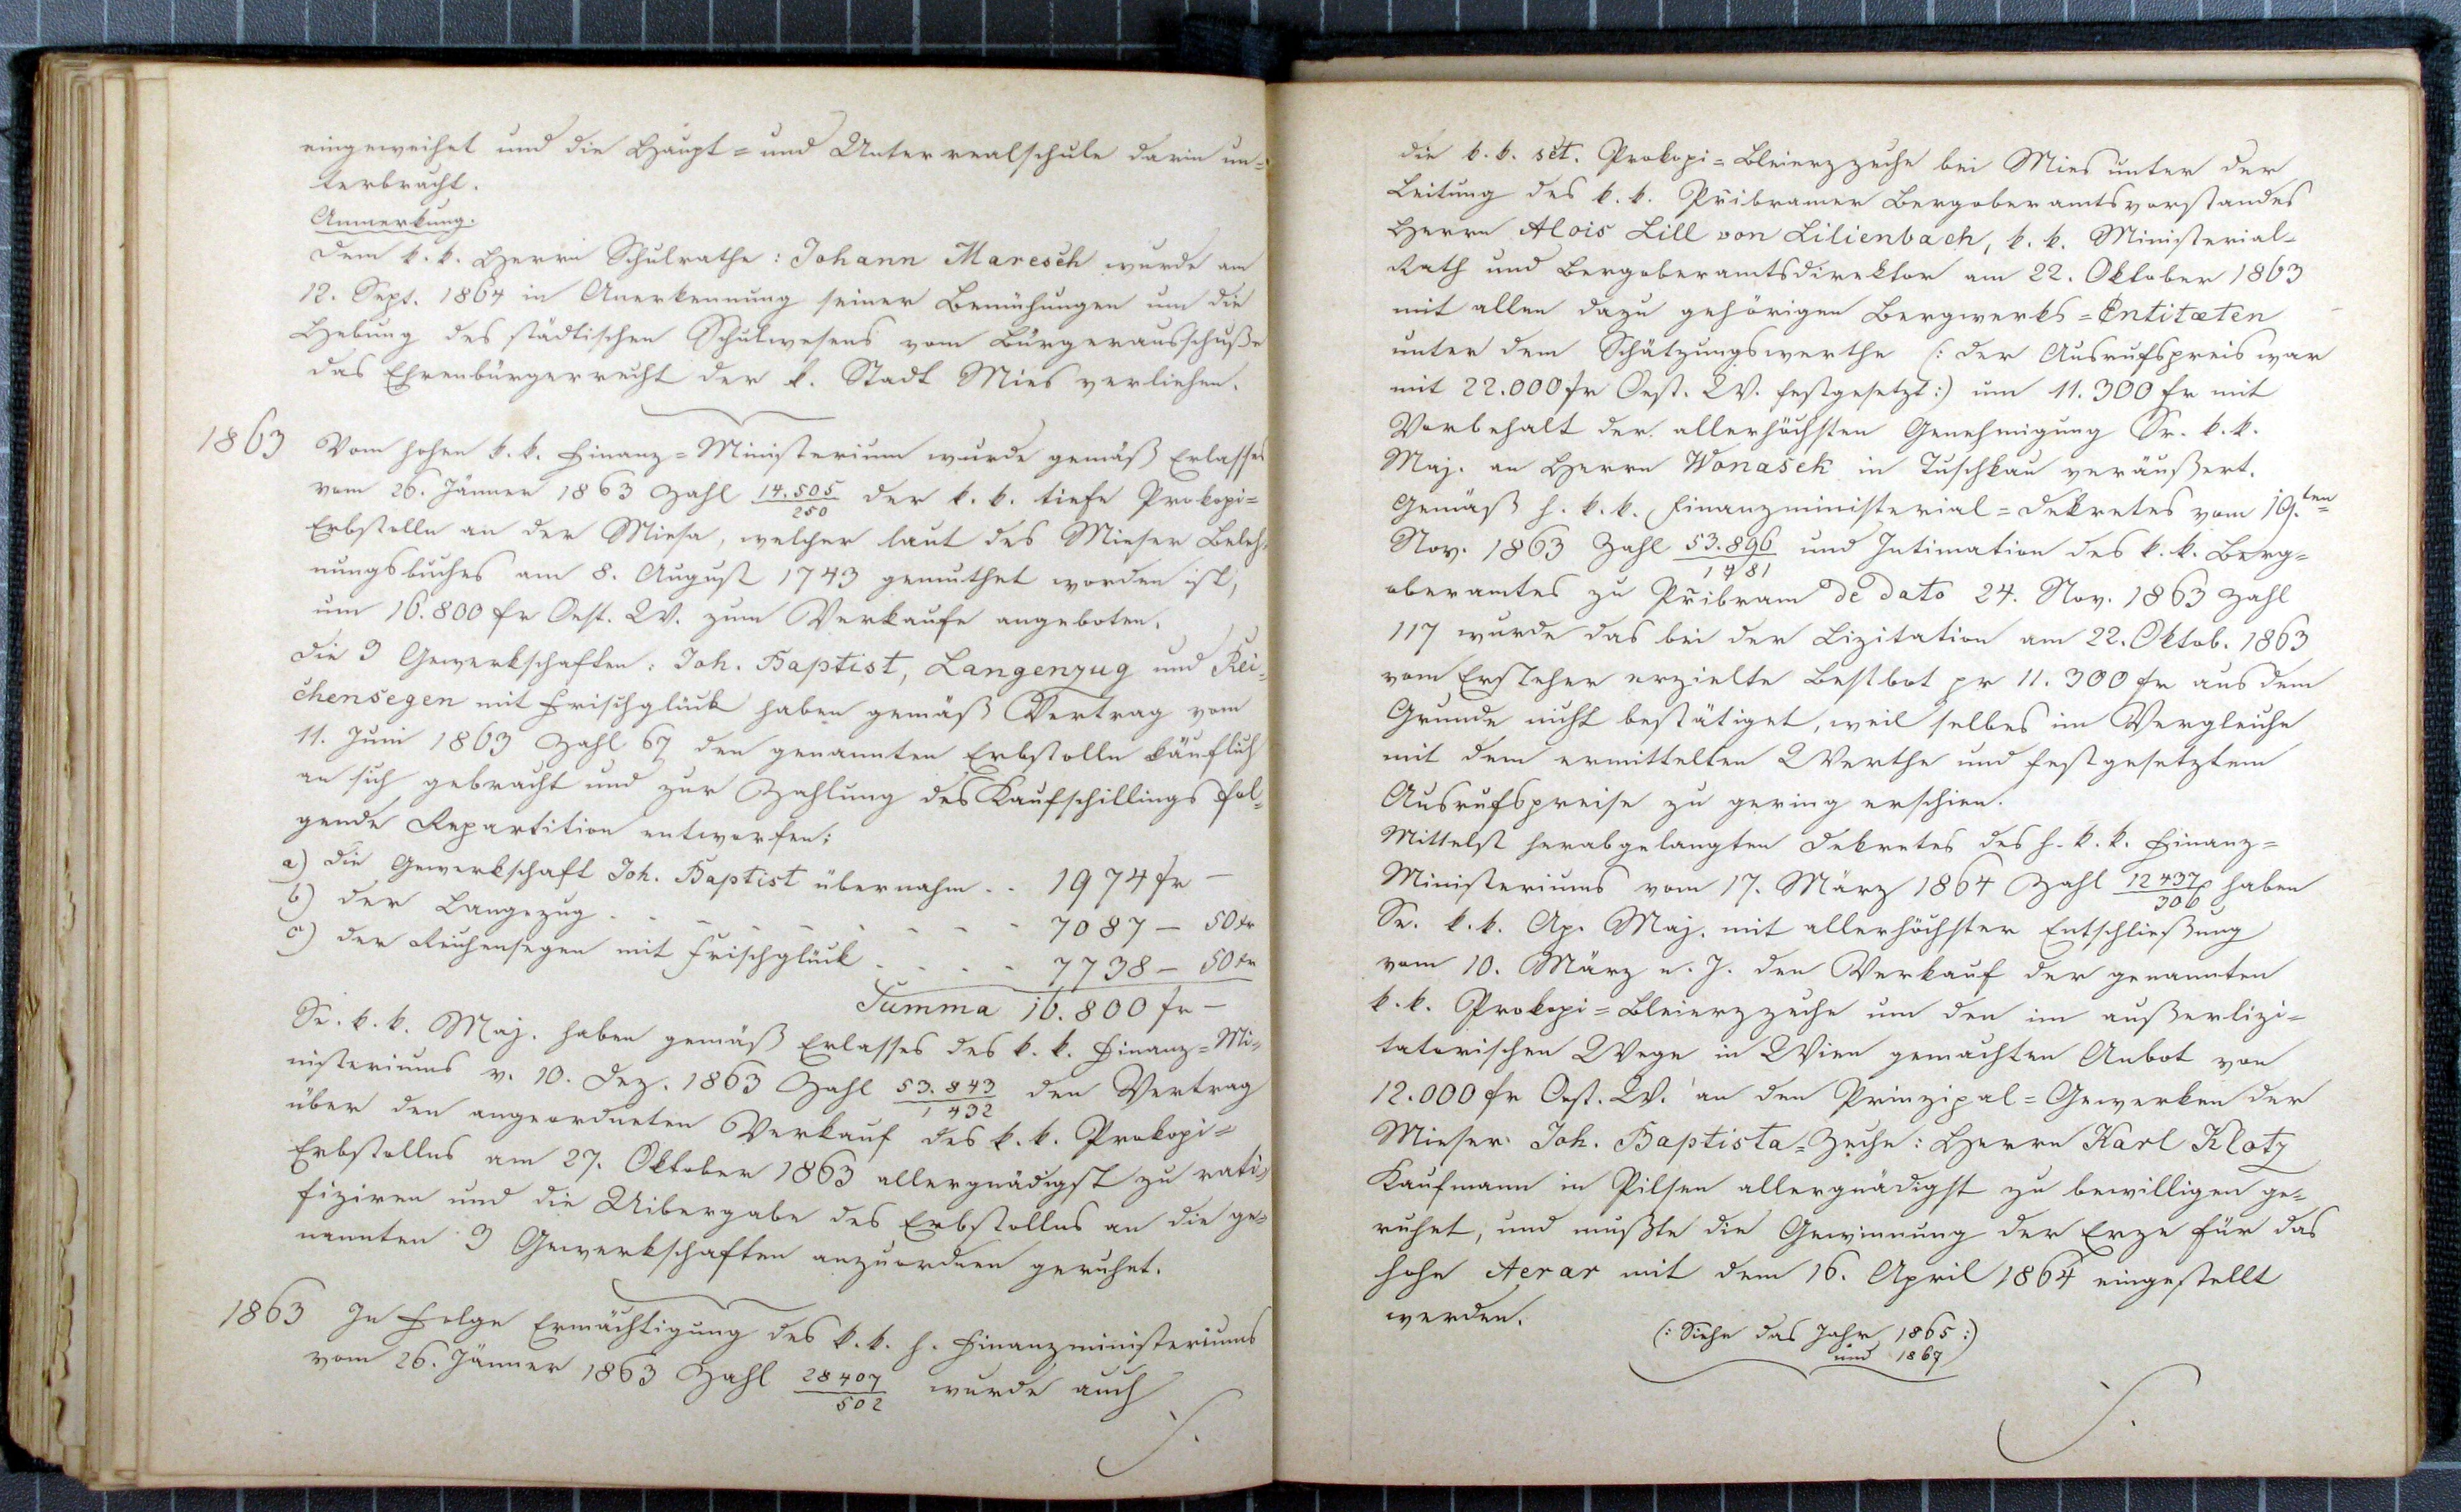 eingeweihet und die Haupt- und Unterrealschule darin un-
terbracht.
Anmerkung.
Dem k. k. Herrn Schulrathe: Johann Maresch wurde am
12. Sept. 1864 in Anerkennung seiner Bemühungen um die
Hebung des städtischen Schulwesens vom Bürgerausschuße
das Ehrenbürgerrecht der k. Stadt Mies verliehen.
1863 Vom hohen k. k. Finanz-Ministerium wurde gemäß Erlasses
vom 26. Jänner 1863 Zahl 14.505/250 der k. k. tiefe Prokopi-
Erbstolln an der Miesa, welcher laut des Mieser Beleh-
nungsbuches am 8. August 1743 gemuthet worden ist,
um 16.800 fr Oest. W. zum Verkaufe angeboten.
Die 3 Gewerkschaften: Joh. Baptist, Langenzug und Rei-
chensegen mit Frischglück haben gemäß Vertrag vom
11. Juni 1863 Zahl 67 den genannten Erbstolln käuflich
an sich gebracht und zur Zahlung des Kaufschillings fol-
gende Repartition entworfen:
a) Die Gewerkschaft Joh. Baptist übernahm . . 1974 fr —
b) der Langezug . . . . . . . . 7087 — 50 kr
c) der Reichensegen mit Frischglück . . . . 7738 — 50 kr
Summa 16.800 fr —
Se. k. k. Maj. haben gemäß Erlasses des k. k. Finanz-Mi-
nisteriums v. 10. Dez. 1863 Zahl 53.843/1432 den Vertrag
über den angeordneten Verkauf des k. k. Prokopi-
Erbstollns am 27. Oktober 1863 allergnädigst zu rati-
fiziren und die Uibergabe des Erbstollns an die ge-
nannten 3 Gewerkschaften anzuordnen geruhet.
1863 In Folge Ermächtigung des k. k. h. Finanzministeriums
vom 26. Jänner 1863 Zahl 28407/502 wurde auch
die k. k. sct. Prokopi-Bleierzzeche bei Mies unter der
Leitung des k. k. Přibramer Bergoberamtsvorstandes
Herrn Alois Lill von Lilienbach, k. k. Ministerial-
Rath und Bergoberamtsdirektor am 22. Oktober 1863
mit allen dazu gehörigen Bergwerks-Entitæten
unter dem Schätzungswerthe (: der Ausrufspreis war
mit 22.000 fr Oest. W. festgesetzt :) um 11.300 fr mit
Vorbehalt der allerhöchsten Genehmigung Sr. k. k.
Maj. an Herrn Wonasek in Tuschkau veräußert.
Gemäß h. k. k. Finanzministerial-Dekretes vom 19.ten
Nov. 1863 Zahl 53.896/1481 und Intimation des k. k. Berg-
oberamtes zu Přibram de dato 24. Nov. 1863 Zahl
117 wurde das bei der Lizitation am 22. Oktob. 1863
vom Ersteher erzielte Bestbot pr 11.300 fr aus dem
Grunde nicht bestätiget, weil selbes im Vergleiche
mit dem ermittelten Werthe und festgesetztem
Ausrufspreise zu gering erschien.
Mittelst herabgelangten Dekretes des h. k. k. Finanz-
Ministeriums vom 17. März 1864 Zahl 12437/306 haben
Se. k. k. Ap. Maj. mit allerhöchster Entschließung
vom 10. März n. J. den Verkauf der genannten
k. k. Prokopi-Bleierzzeche um den im außerlizi-
tatorischen Wege in Wien gemachten Anbot von
12.000 fr Oest. W. an den Prinzipal-Gewerken der
Mieser Joh. Baptista-Zeche: Herrn Karl Klotz
Kaufmann in Pilsen allergnädigst zu bewilligen ge-
ruhet, und mußte die Gewinnung der Erze für das
hohe Aerar mit dem 16. April 1864 eingestellt
werden.
(: Siehe das Jahr 1865 :)
und 1867